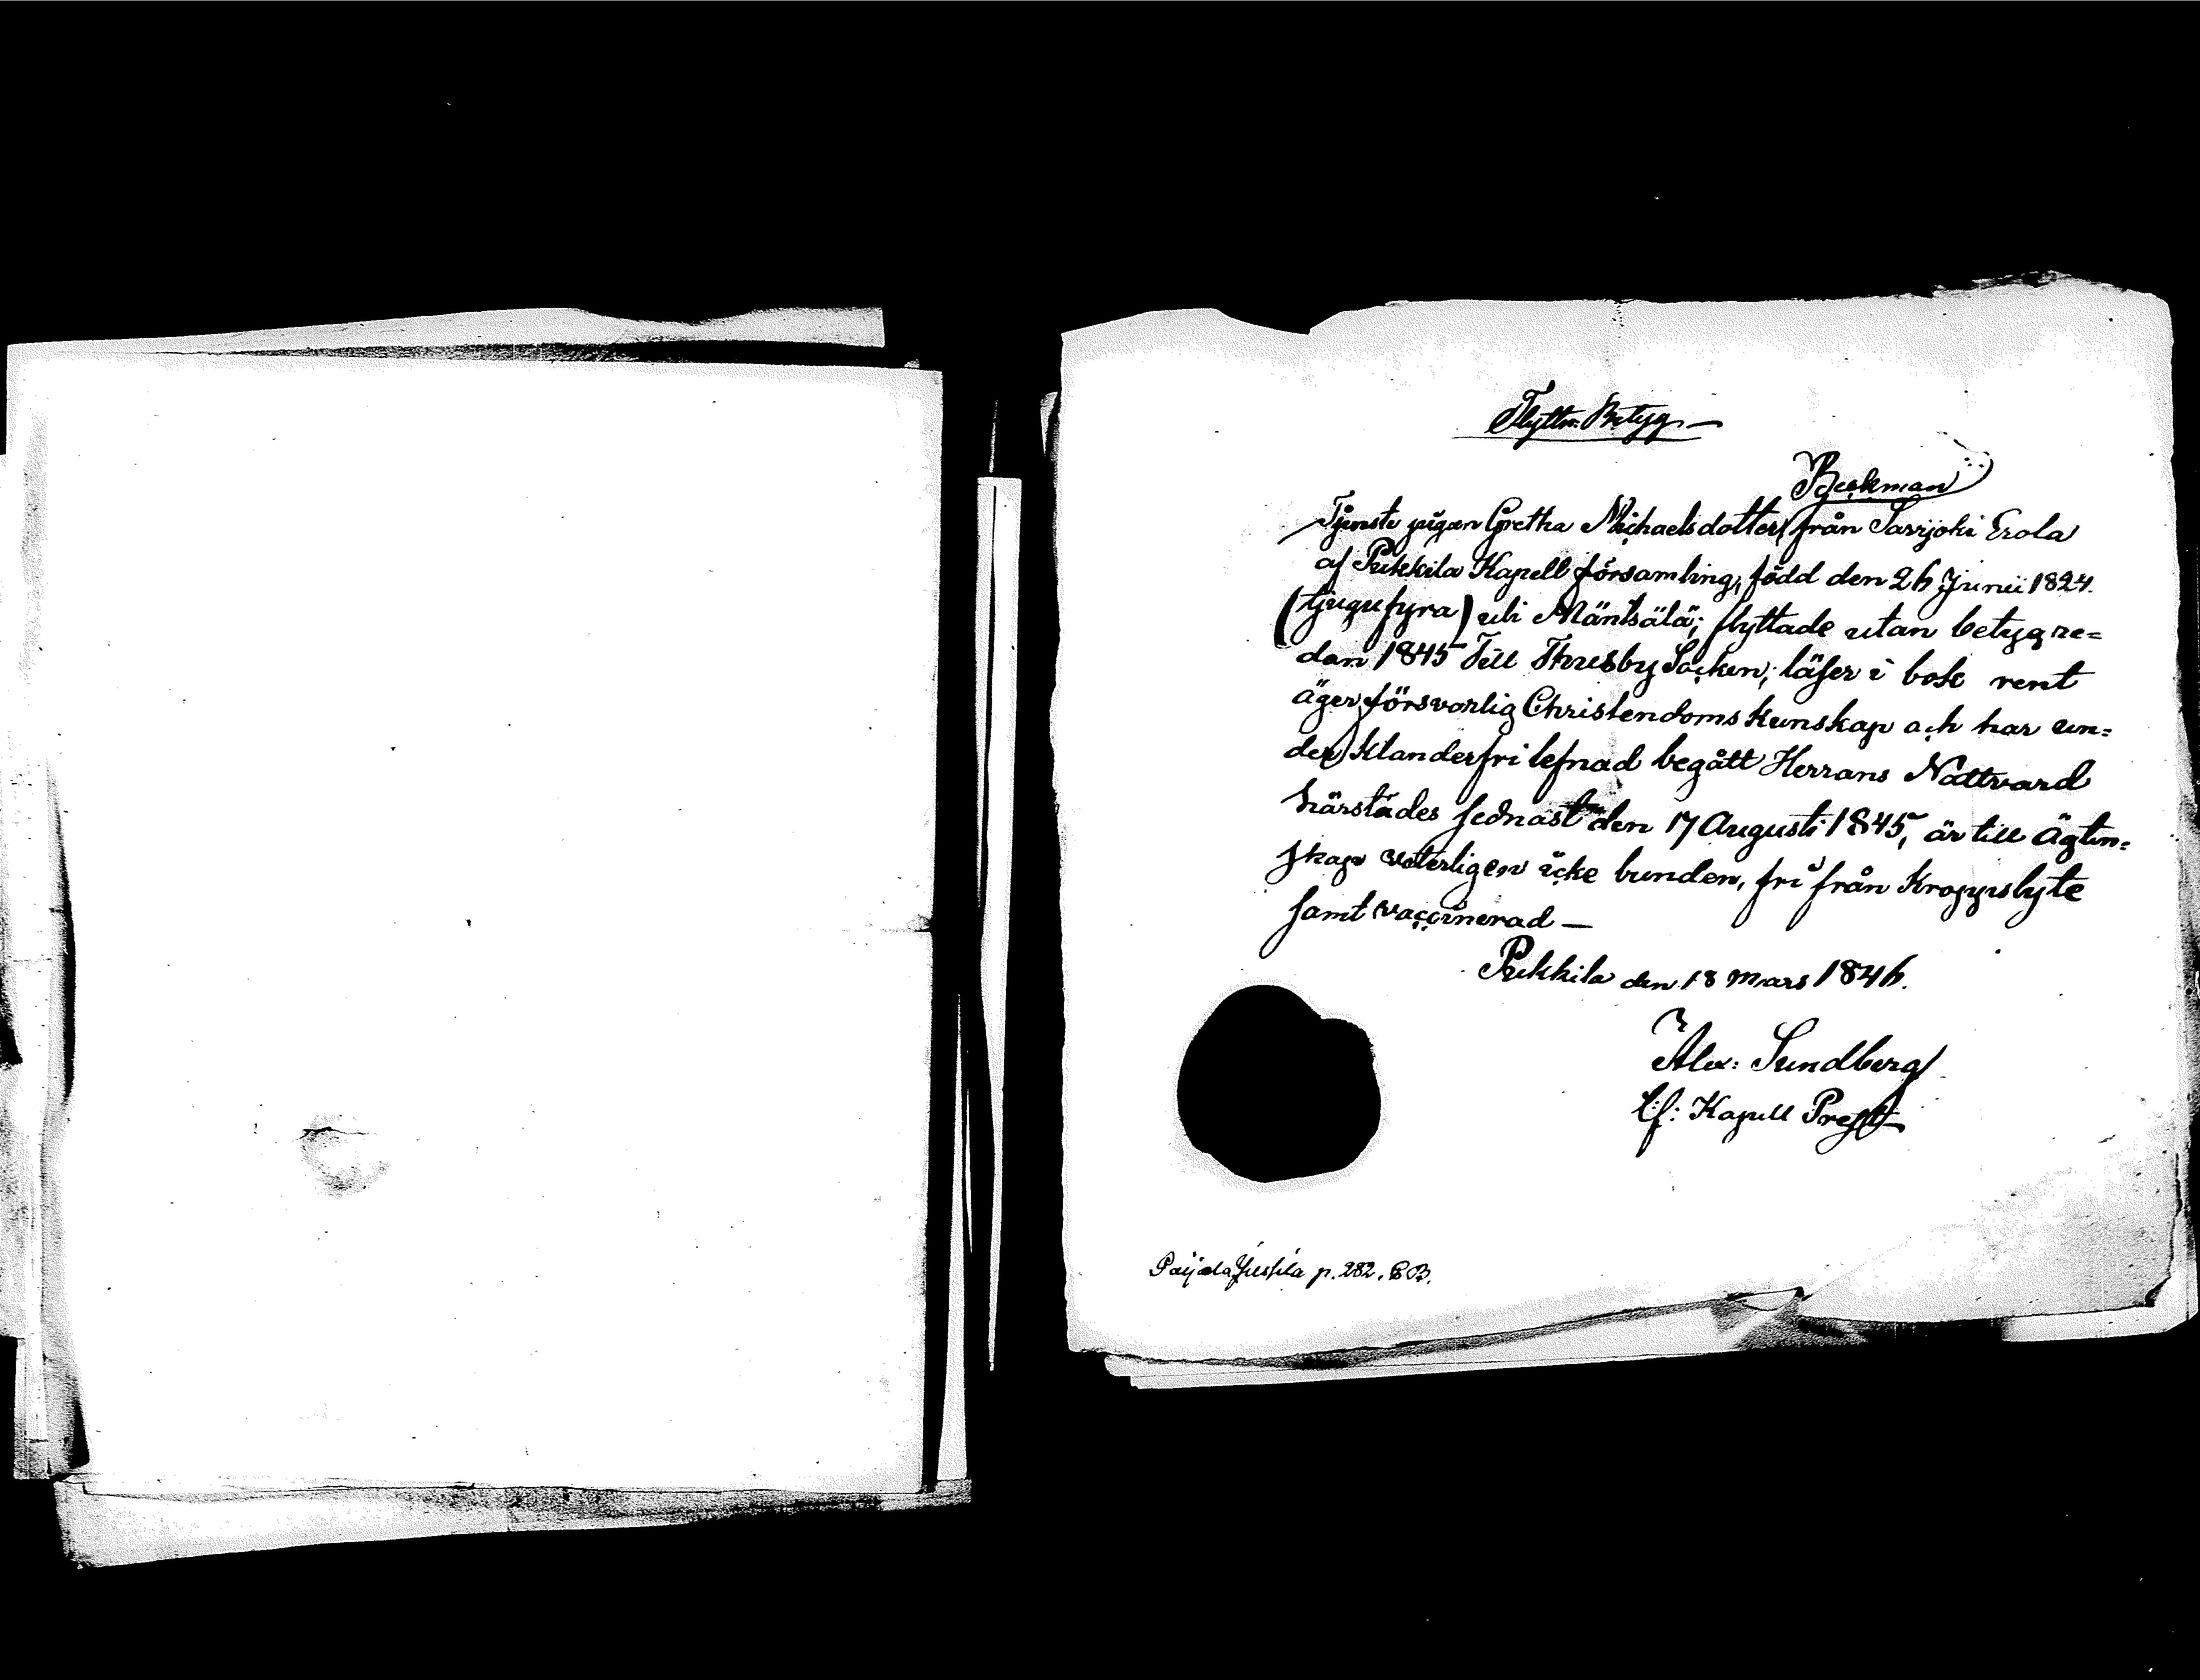 Flytto-Betyg
Bjeckman
Tjenste pigan Gretha Michaelsdotter från Sarijoki Erola
af Pukkila Kapell församling, född den 26 Junii 1824.
(tjugufyra) uti Mäntsälä; flyttade utan betyg re=
dan 1845 Till Thusby Socken; läser i bok rent
äger försvarlig Christendoms kunskap och har un=
der klanderfri lefnad begått Herrans Nattvard
härstädes sednast den 17 Augusti 1845, är till Ägten=
skap veterligen icke bunden, fri från Kroppslyte
samt vaccinerad —
Pukkila den 18 Mars 1846.
Alex: Sundberg
Kapell Prest
p. 282. C B.